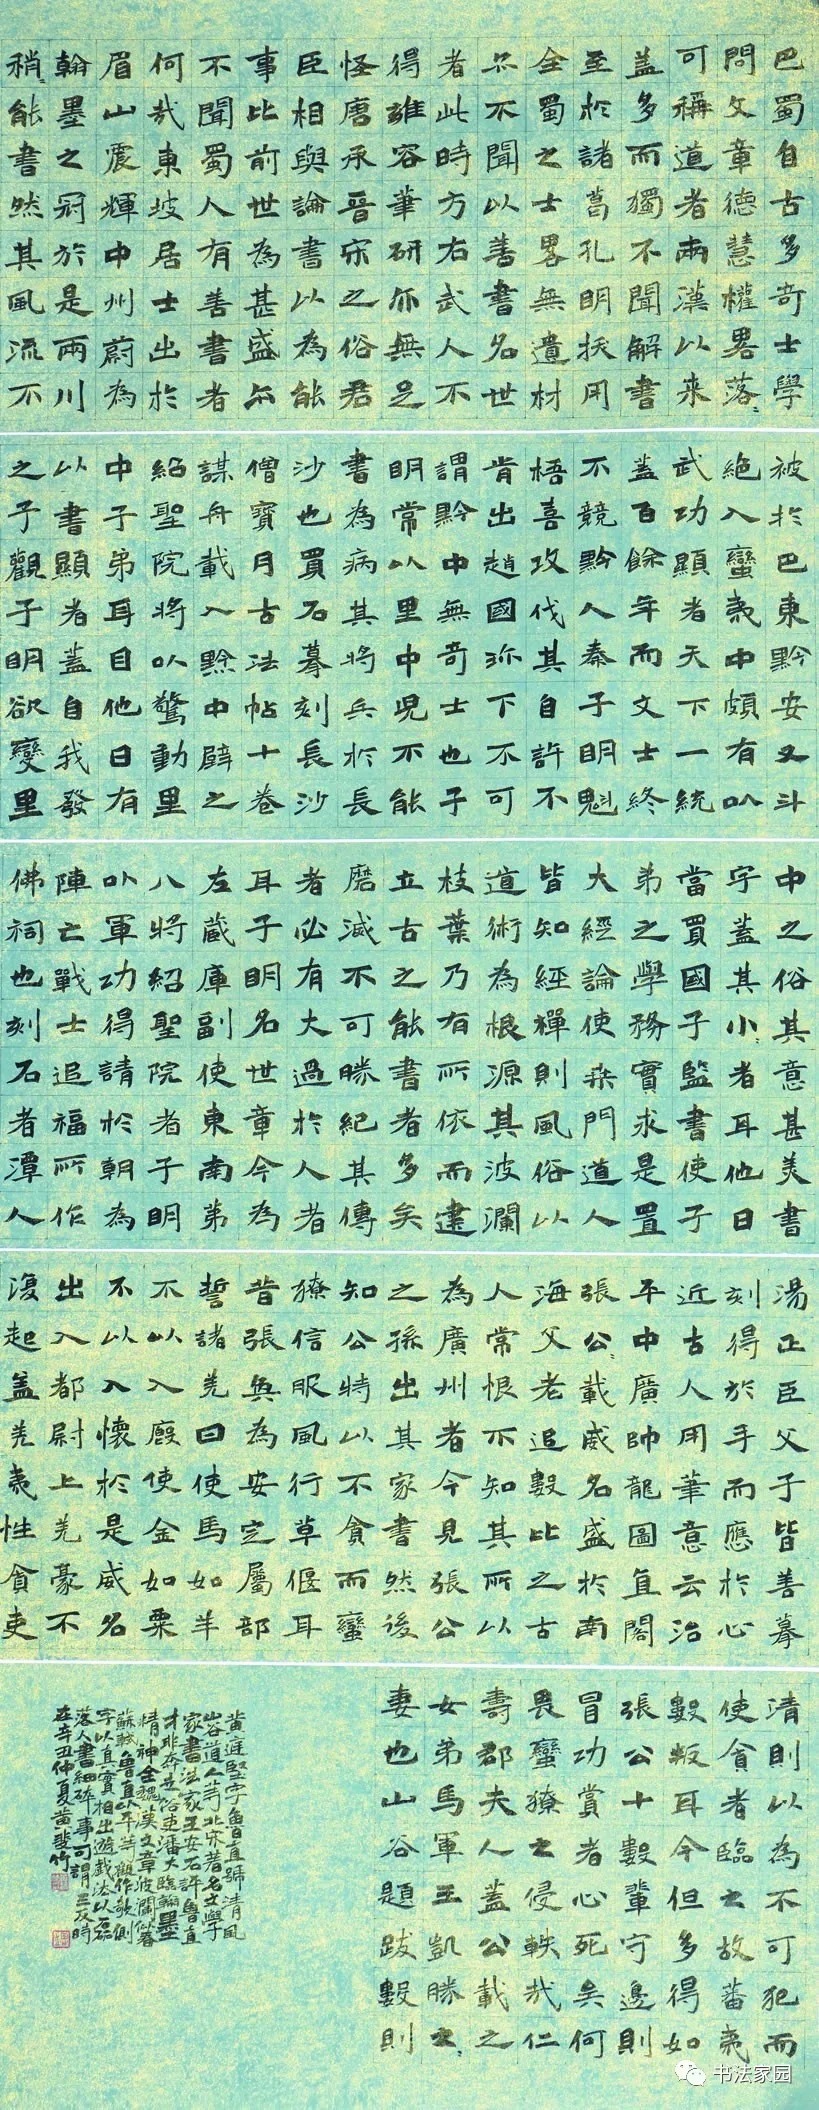 巴蜀自古多奇士學
問文章德慧權畧落〻
可稱道者兩漢以来
盖多而獨不聞解書
至於諸葛孔明挾用
全蜀之士畧無遺材
尒不聞以善書名世
者此時方右武人不
得雍容筆研亦無足
怪唐承晉宋之俗君
臣相與論書以為能
事比前世為甚盛尒
不聞蜀人有善書者
何哉東坡居士出於
眉山震輝中州蔚為
翰墨之冠於是兩川
稍〻能書然其風流不
被於巴東黔安又斗
絕入蠻夷中頗有以
武功顯者天下一統
蓋百餘年而文士終
不競黔人秦子明魁
梧喜攻伐其自許不
肯出趙國珎下不可
謂黔中無奇士也子
明常以里中兒不能
書為病其將兵於長
沙也買石摹刻長沙
僧寶月古法帖十卷
謀舟載入黔中壁之
紹聖院將以驚動里
中子弟耳目他日有
以書顯者蓋自我發
之予觀子明欲變里
中之俗其意甚美書
字蓋其小〻者耳他日
當買國子監書使子
弟之學務實求是置
大經論使桒門道人
皆知經禪則風俗以
道術為根源其波瀾
枝葉乃有所依而建
立古之能書者多矣
磨滅不可勝紀其傳
者必有大過於人者
耳子明名世章今為
左藏庫副使東南第
八將紹聖院者子明
以軍功得請於朝為
陣亡戰士追福所作
佛祠也刻石者潭人
湯正臣父子皆善摹
刻得於手而應於心
近古人用筆意云治
平中廣帥龍圖直閣
張公載威名盛於南
海父老追數比之古
人常恨不知其所以
為廣州者今見張公
之孫出其家書然後
知公特以不貪而蠻
獠信服風行草偃耳
昔張奐為安定屬部
誓諸羌曰使馬如羊
不以入廄使金如粟
不以入懷於是威名
出入都尉上羌豪不
復起盖羌夷性貪吏
清則以為不可犯而
使貪者臨之故蕃夷
數叛耳今但多得如
張公十數輩守邊則
冒功賞者心死矣何
畏蠻獠之侵軼哉仁
壽郡夫人蓋公載之
女弟馬軍王凱勝之〻
妻也山谷題跋數則
黄庭堅字魯直號清風
山谷道人等北宋著名文學
家書法家王安石評魯直
才非奔走俗吏潘大臨翰墨
精神全魏漢文章波瀾似春
蘇軾魯直以平等觀作欹側
字以真實相出遊戲法以磊
落人書細碎事可謂三反時
在辛丑仲夏黄斐竹
书法家园